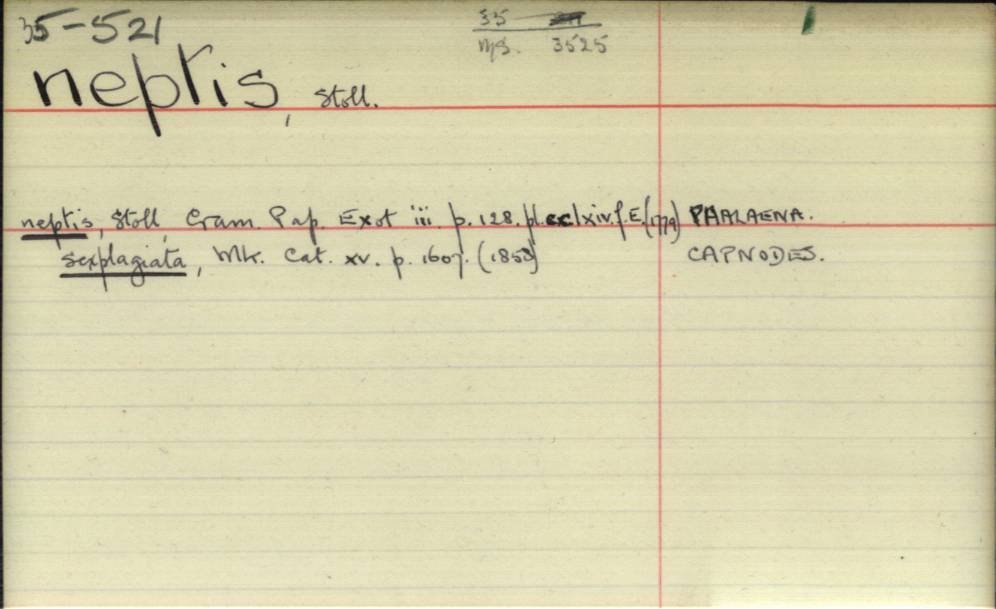 35-521
35
ms. 3525
neptis, Stoll.
neptis, Stoll, Cram. Pap. Exot iii. p. 128. pl. cclxiv. f. E. (1779) PHALAENA.
sexplagiata, Wlk. Cat. xv. p. 1607. (1858) CAPNODES.